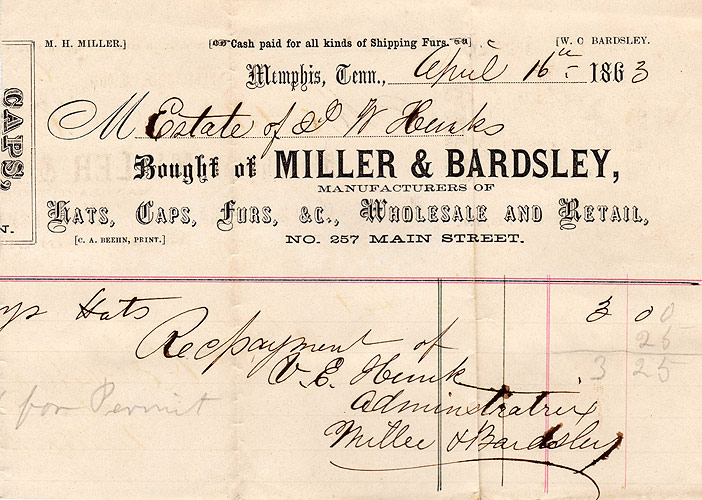 M. H. MILLER.] [Cash paid for all kinds of Shipping Furs.] [W. C BARDSLEY.
Memphis, Tenn., April 16th 1863
M Estate of W Henks
Bought of MILLER & BARDSLEY,
MANUFACTURERS OF
HATS, CAPS, FURS, &C., WHOLESALE AND RETAIL,
[C. A. BEEHN, PRINT.] NO. 257 MAIN STREET.
CAPS,
N.
Hats 3 00
25
3 25
Recpayment of
V. E. Henk
Adminstratrix
Miller & Bardsley
for Permit